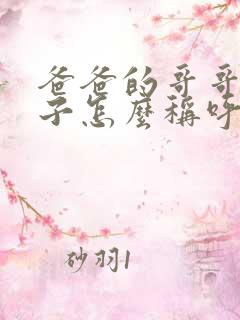 爸爸的哥哥
子怎麼稱呼
砂羽1